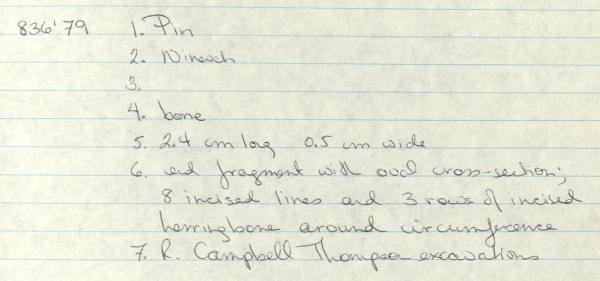 836'79 1. Pin
2. Nineveh
3.
4. bone
5. 2.4 cm long 0.5 cm wide
6. end fragment with oval cross-section;
8 incised lines and 3 rows of incised
herringbone around circumference
7. R. Campbell Thompson excavations